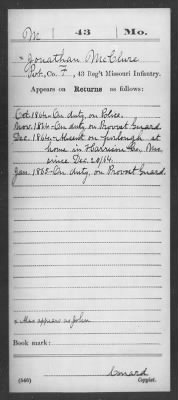 M | 43 | Mo.
Jonathan McClure
Pvt., Co. F, 43 Reg't Missouri Infantry.
Appears on Returns as follows:
Oct. 1864-On duty, on Police.
Nov. 1864-On duty, on Provost Guard.
Dec. 1864-Absent on furlough at
home in Harrison Co, Mo.
since Dec. 20/64.
Jan. 1865-On duty, on Provost Guard.
x Also appears as John
Book mark:
(546)
Copyist.